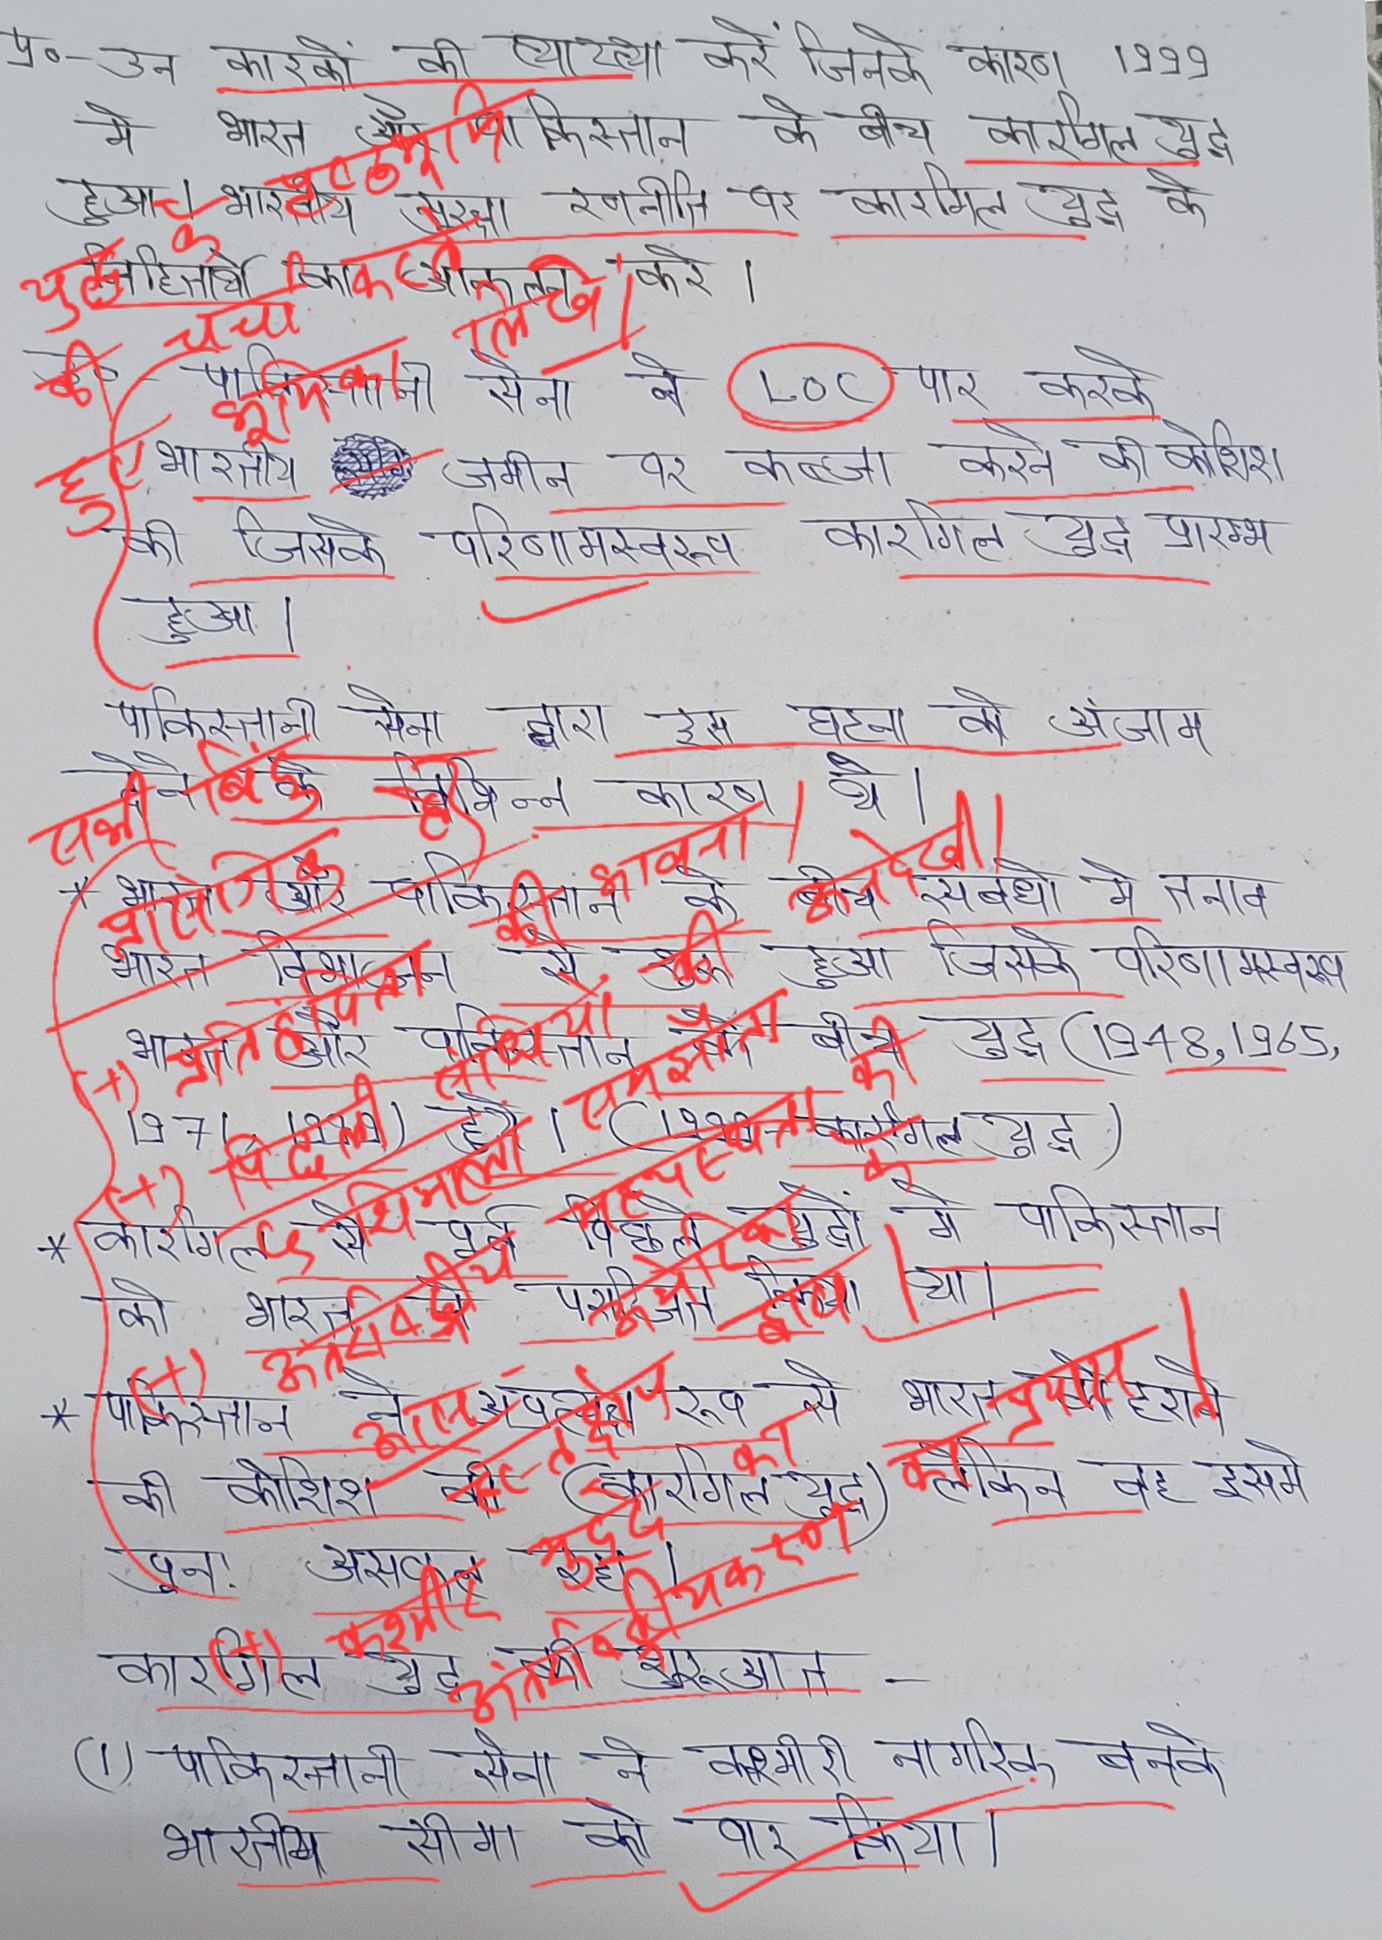 प्र०- उन कारकों की व्याख्या करें जिनके कारण 1999
मे भारत और पाकिस्तान के बीच कारगिल युद्ध
हुआ। भारतीय सुरक्षा रणनीति पर कारगिल युद्ध के
निहितार्थो का आकलन करे।
युद्ध के पृष्ठभूमि
की चर्चा
हुए भूमिका लिखे।
उ०- पाकिस्तानी सेना ने LOC पार करके
भारतीय जमीन पर कब्जा करने की कोशिश
की जिसके परिणामस्वरूप कारगिल युद्ध प्रारम्भ
हुआ।
पाकिस्तानी सेना द्वारा इस घटना को अंजाम
देने के विभिन्न कारण थे।
सभी बिंदु
प्रासंगिक है
* भारत और पाकिस्तान के बीच सबंधो मे तनाव
भारत विभाजन से शुरू हुआ जिसके परिणामस्वरूप
भारत और पाकिस्तान के बीच युद्ध (1948, 1965,
1971, 1999) हुये। (1999-कारगिल युद्ध)
(+) की भावना।
(+) पिछली संधियों
शिमला समझौता की
* कारगिल से पूर्व पिछले युद्धों मे पाकिस्तान
को भारत ने पराजित किया था।
(+) अंतर्राष्ट्रीय मध्यस्थता के
* पाकिस्तान ने अप्रत्यक्ष रूप से भारत को हराने
की कोशिश की (कारगिल युद्ध) लेकिन वह इसमे
पुनः असफल रहा।
हस्तक्षेप का प्रयोग।
(+) कश्मीर मुद्दे का
अंतर्राष्ट्रीयकरण
कारगिल युद्ध की शुरूआत -
(1) पाकिस्तानी सेना ने कश्मीरी नागरिक बनके
भारतीय सीमा को पार किया।